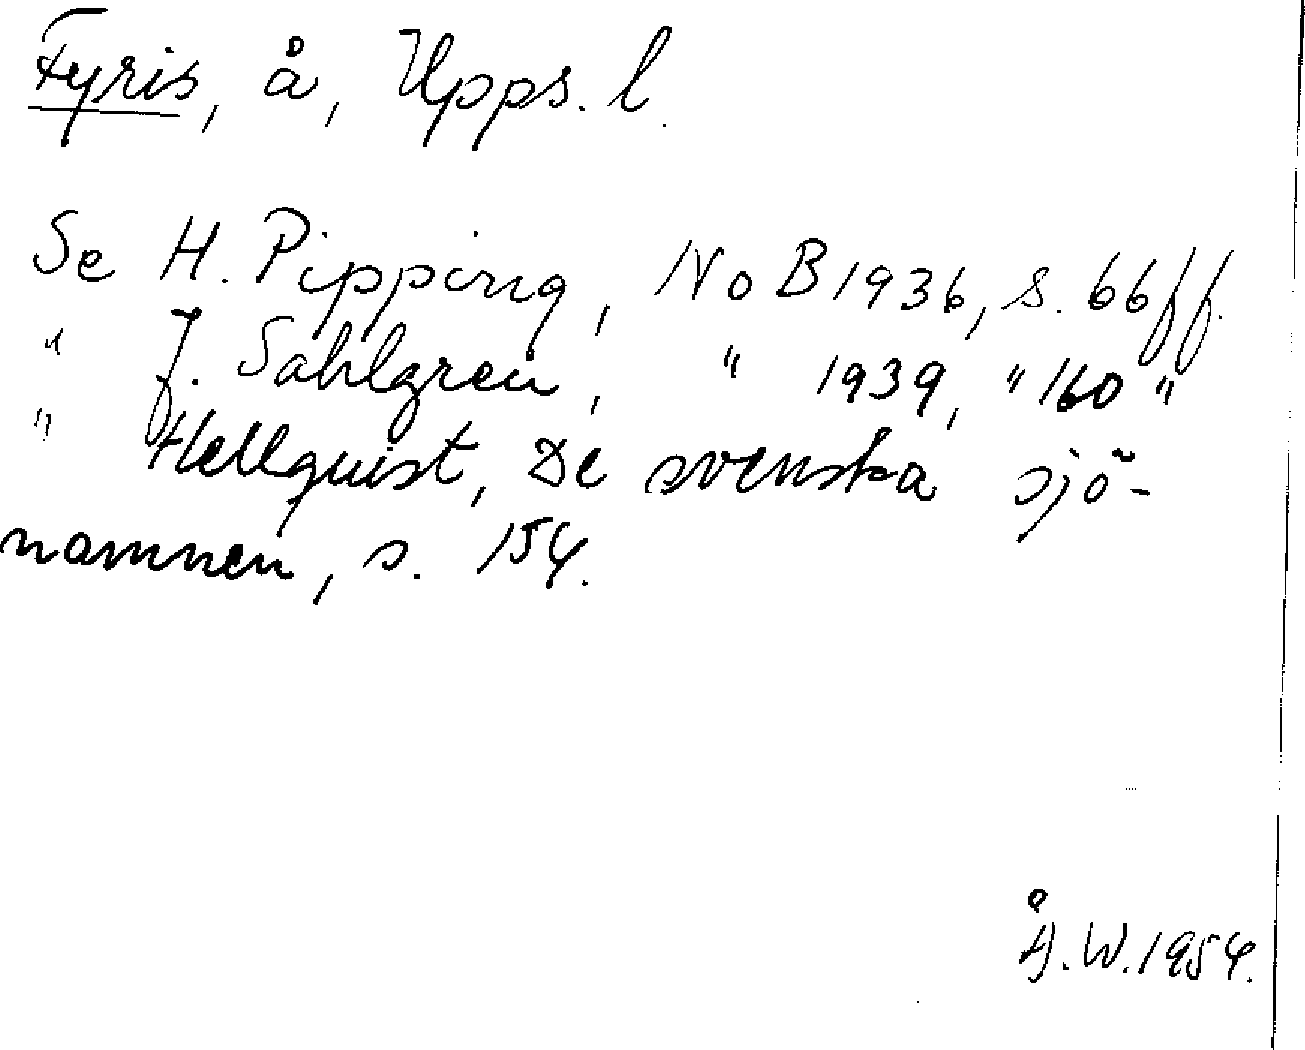 Fyris, å, Upps. l.
Se H. Pipping, NoB 1936, s. 66ff.
" J. Sahlgren, " 1939, " 160 "
" Hellquist, De svenska sjö-
namnen, s. 154.
Å.W. 1954.